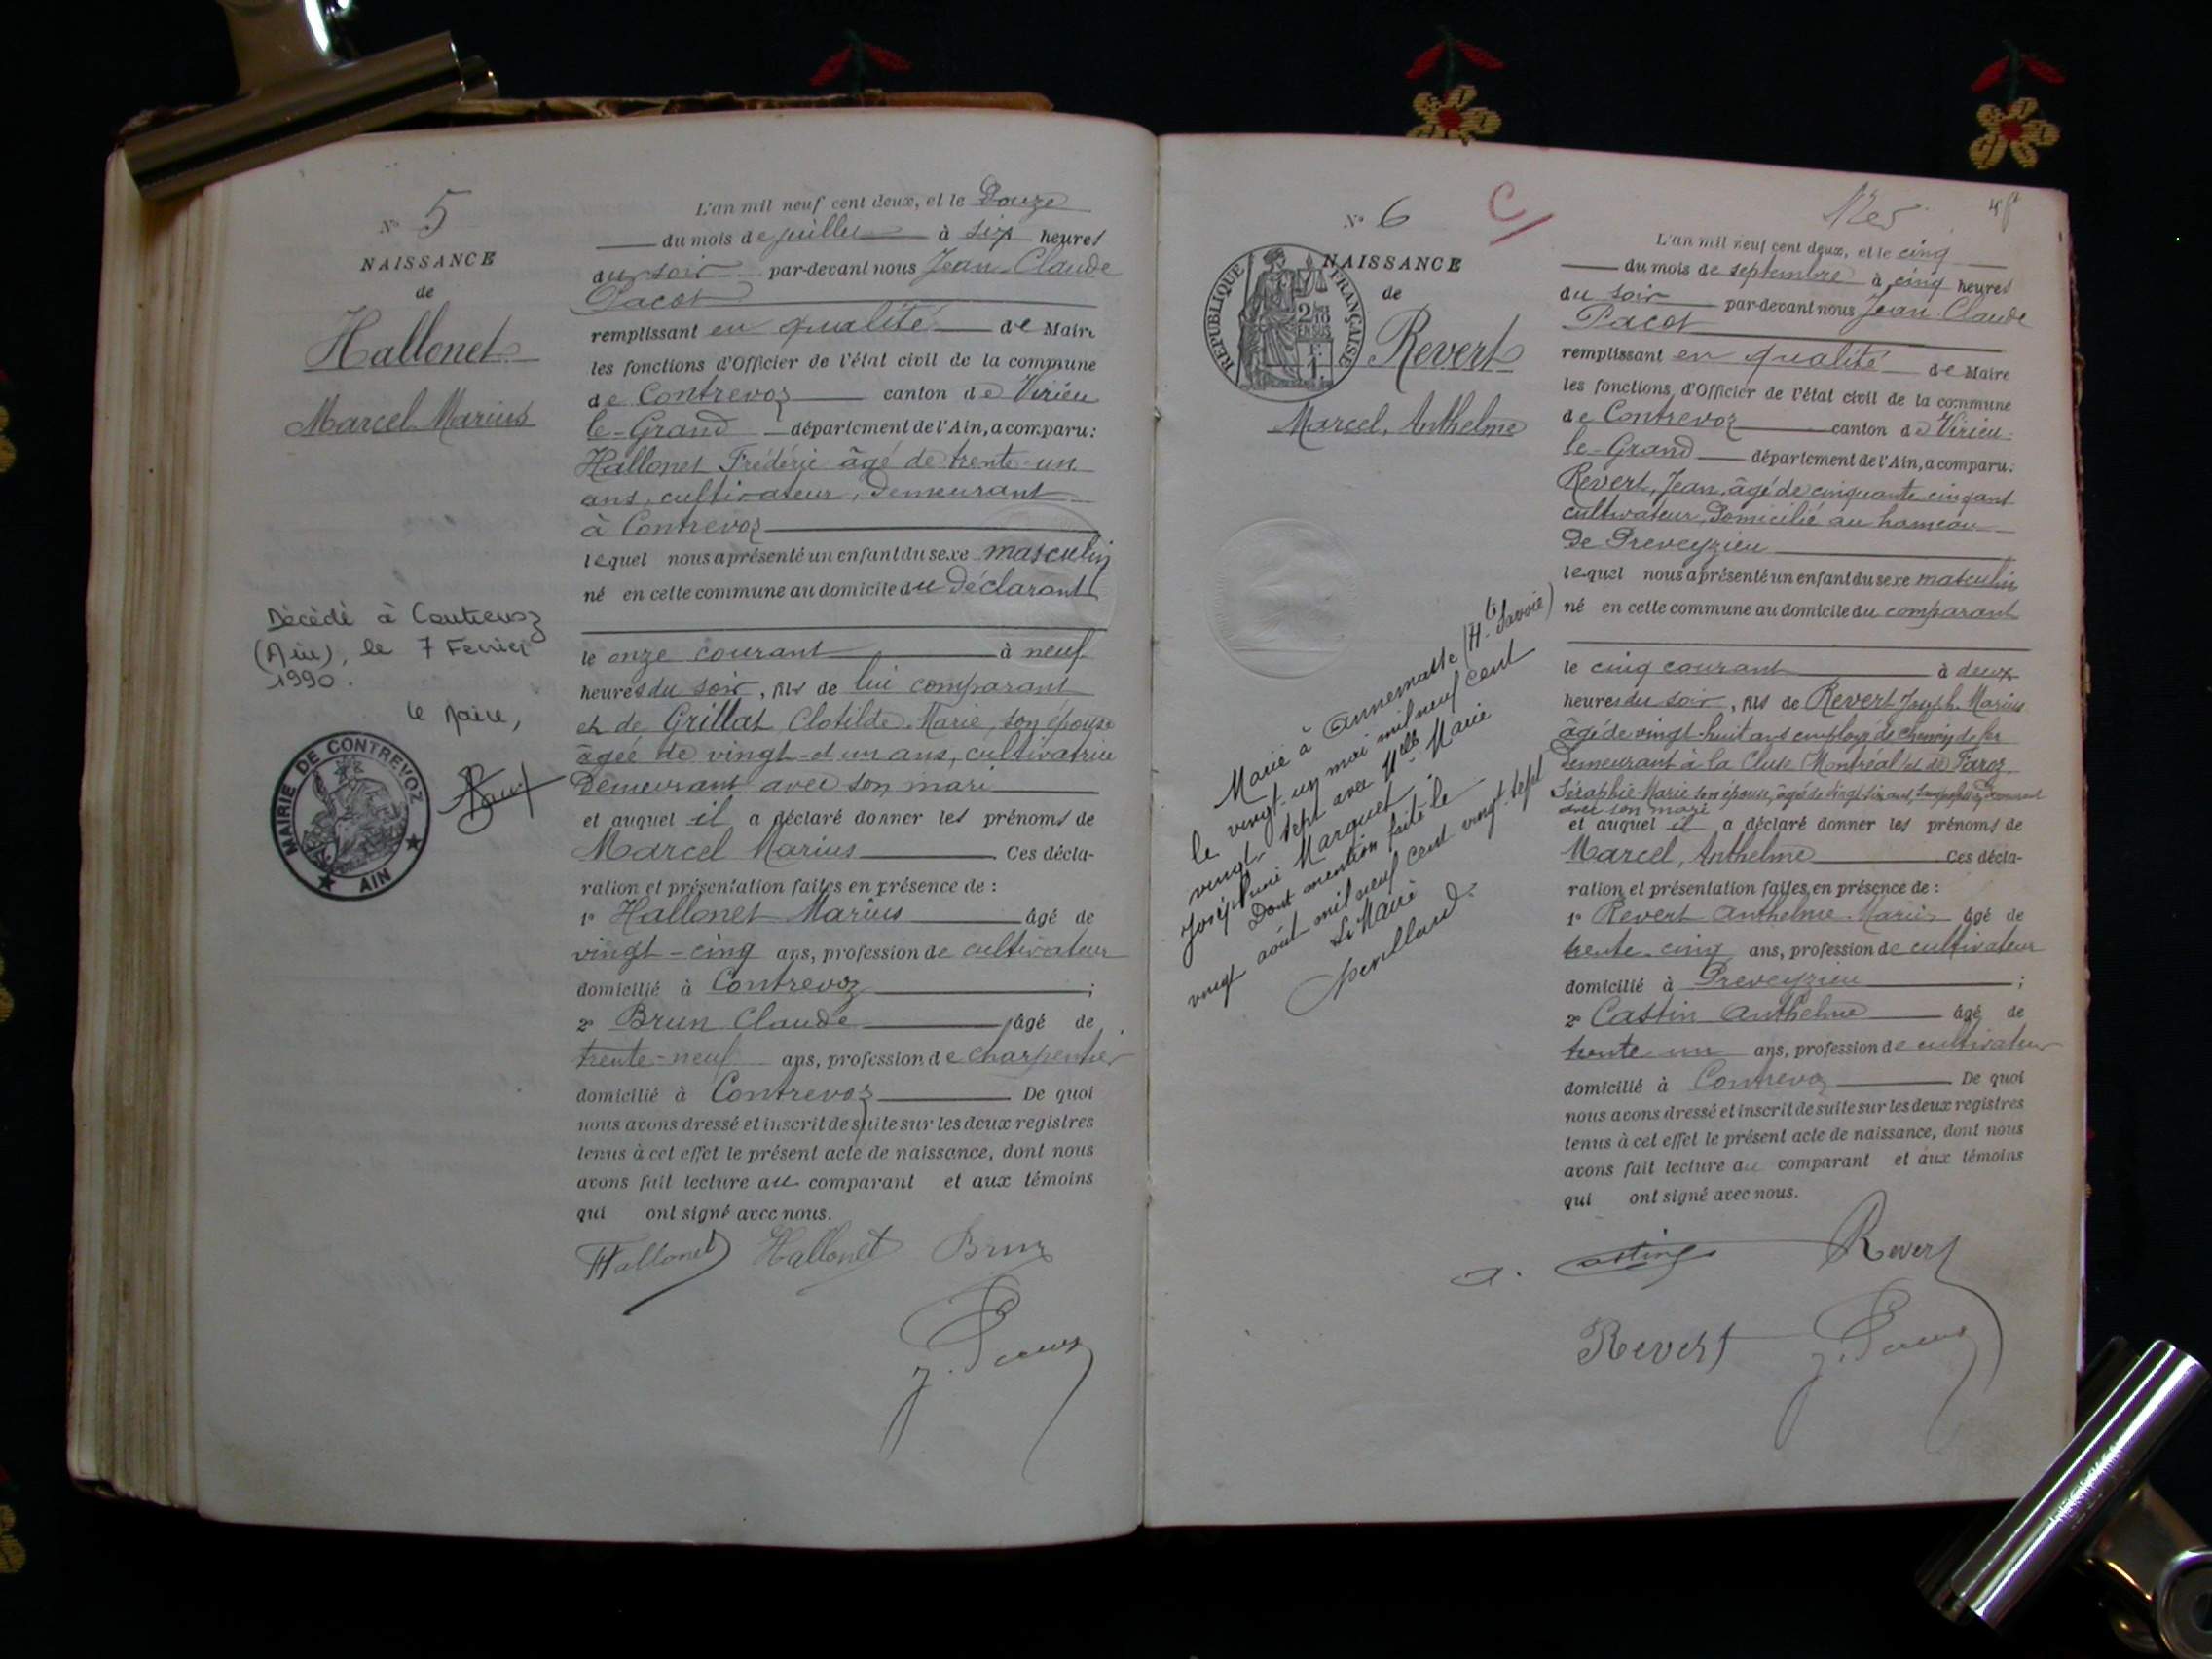 N° 5
NAISSANCE
de
Hallonet
Marcel Marius
Décédé à Contrevoz
(Ain), le 7 Fevrier
1990.
le Maire,
MAIRIE DE CONTREVOZ
AIN
L'an mil neuf cent deux, et le Douze
du mois de juillet à six heures
du soir par-devant nous Jean-Claude
Pacot
remplissant en qualité de Maire
les fonctions d'Officier de l'état civil de la commune
de Contrevoz canton de Virieu
le-Grand département de l'Ain, a comparu:
Hallonet Frédéric âgé de trente-un
ans, cultivateur, demeurant
à Contrevoz
lequel nous a présenté un enfant du sexe masculin
né en cette commune au domicile du déclarant
le onze courant à neuf
heures du soir, fils de lui comparant
et de Grillat Clotilde Marie, son épouse
âgée de vingt-et un ans, cultivatrice
Demeurant avec son mari
et auquel il a déclaré donner les prénoms de
Marcel Marius Ces décla-
ration et présentation faites en présence de :
1° Hallonet Marius âgé de
vingt-cinq ans, profession de cultivateur
domicilié à Contrevoz ;
2° Brun Claude âgé de
trente-neuf ans, profession de charpentier
domicilié à Contrevoz De quoi
nous avons dressé et inscrit de suite sur les deux registres
tenus à cet effet le présent acte de naissance, dont nous
avons fait lecture au comparant et aux témoins
qui ont signé avec nous.
Hallonet Hallonet Brun
J. Pacot
N° 6
NAISSANCE
de
RÉPUBLIQUE FRANÇAISE
2/10 EN SUS
Revert
Marcel, Anthelme
Marié à Annemasse (Hte Savoie)
le vingt-un mai mil neuf cent
vingt sept avec Mlle Marie
Joséphine Marquet
Dont mention faite le
vingt août mil neuf cent vingt-sept
Le Maire
L'an mil neuf cent deux, et le cinq
du mois de septembre à cinq heures
du soir par-devant nous Jean-Claude
Pacot
remplissant en qualité de Maire
les fonctions d'Officier de l'état civil de la commune
de Contrevoz canton de Virieu-
le-Grand département de l'Ain, a comparu:
Revert, Jean, âgé de cinquante cinq ans
cultivateur, Domicilié au hameau
De Preveyzieu
lequel nous a présenté un enfant du sexe masculin
né en cette commune au domicile du comparant
le cinq courant à deux
heures du soir, fils de Revert Joseph Marius
âgé de vingt-huit ans employé de chemin de fer
Demeurant à la Cluse (Montréal) et de Faroz
Séraphie Marie son épouse, âgée de vingt six ans, sans profession, demeurant
avec son mari
et auquel il a déclaré donner les prénoms de
Marcel, Anthelme Ces décla-
ration et présentation faites, en présence de :
1° Revert Anthelme Marius âgé de
trente-cinq ans, profession de cultivateur
domicilié à Preveyzieu ;
2° Castin Anthelme âgé de
trente-un ans, profession de cultivateur
domicilié à Contrevoz De quoi
nous avons dressé et inscrit de suite sur les deux registres
tenus à cet effet le présent acte de naissance, dont nous
avons fait lecture au comparant et aux témoins
qui ont signé avec nous.
A. Castin Revert
Revert J. Pacot